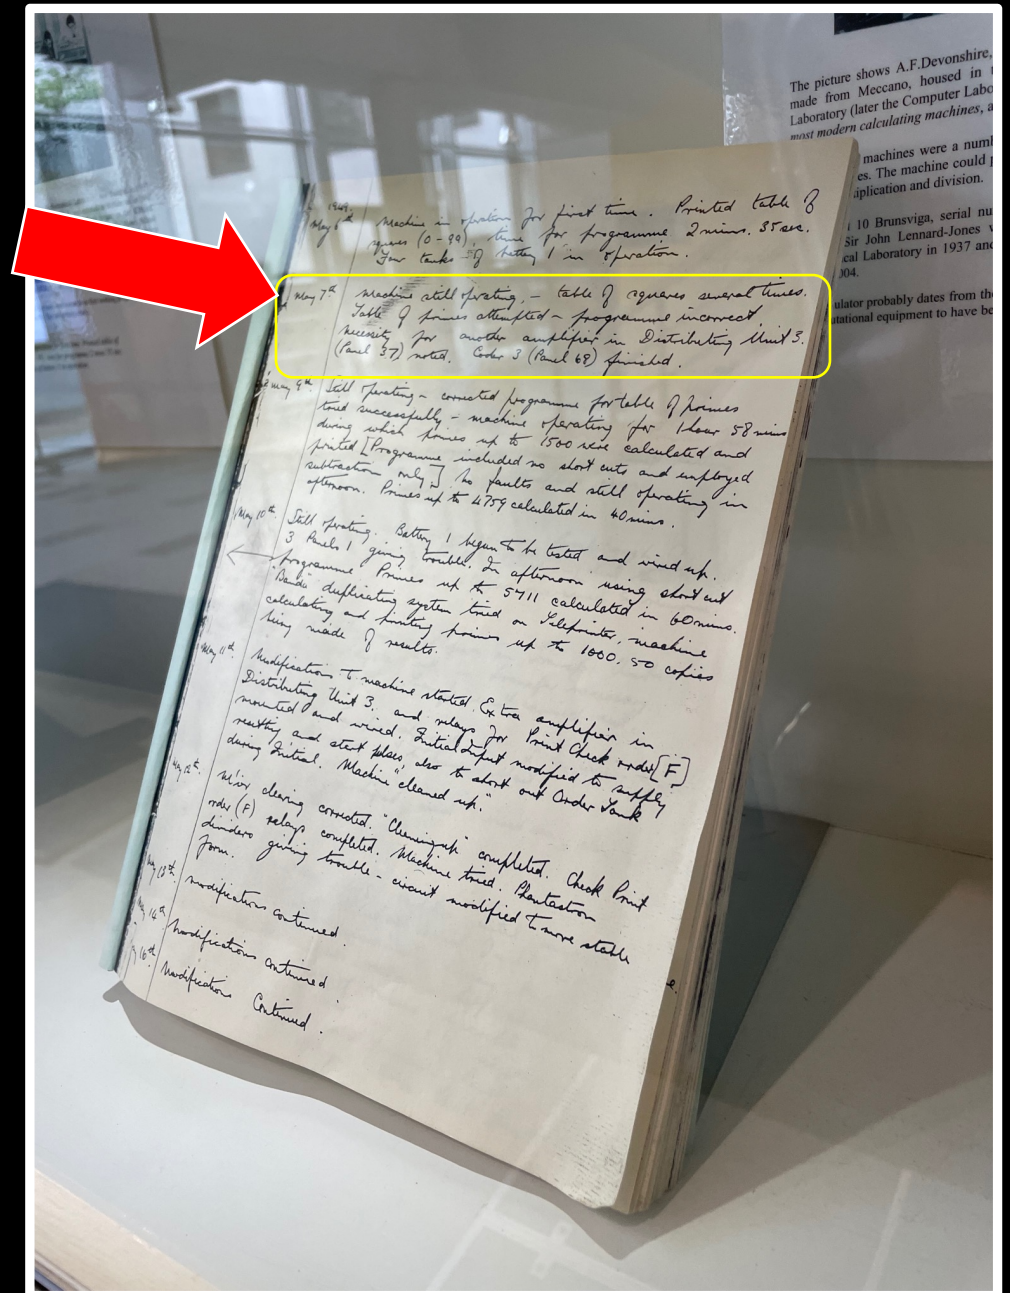 The picture shows A.F.Devonshire,
made from Meccano, housed in
Laboratory (later the Computer Labo
most modern calculating machines, a
machines were a numb
es. The machine could p
iplication and division.
10 Brunsviga, serial nu
Sir John Lennard-Jones
cal Laboratory in 1937 and
004.
ulator probably dates from the
utational equipment to have be
1949.
May 6th Machine in operation for first time. Printed table of
squares (0-99), time for programme 2 mins. 35 sec.
Four tanks of battery 1 in operation.
May 7th Machine still operating, - table of squares several times.
Table of primes attempted - programme incorrect
necessity for another amplifier in Distributing Unit 3.
(Panel 37) noted. Coder 3 (Panel 68) finished.
May 9th Still operating - corrected programme for table of primes
tried successfully - machine operating for 1 hour 58 mins
during which primes up to 1500 were calculated and
printed [Programme included no short cuts and employed
subtraction only] No faults and still operating in
afternoon. Primes up to 4759 calculated in 40 mins.
May 10th Still operating. Battery 1 begun to be tested and wired up.
3 Panels 1 giving trouble. In afternoon using short cut
programme Primes up to 5711 calculated in 60 mins.
"Banda" duplicating system tried on Teleprinter, machine
calculating and printing primes up to 1000. 50 copies
being made of results.
May 11th Modifications to machine started. Extra amplifier in
Distributing Unit 3. and relays for Print Check order [F]
mounted and wired. Initial Input modified to supply
resetting and start pulses, also to short out Order Tank
during Initial. Machine "cleaned up."
May 12th. clearing corrected. "Cleaning up" completed. Check Print
order (F) relays completed. Machine tried. Phantastron
dividers giving trouble - circuit modified to more stable
form.
May 13th. Modifications continued.
May 14th Modifications continued.
16th Modifications Continued.
e.